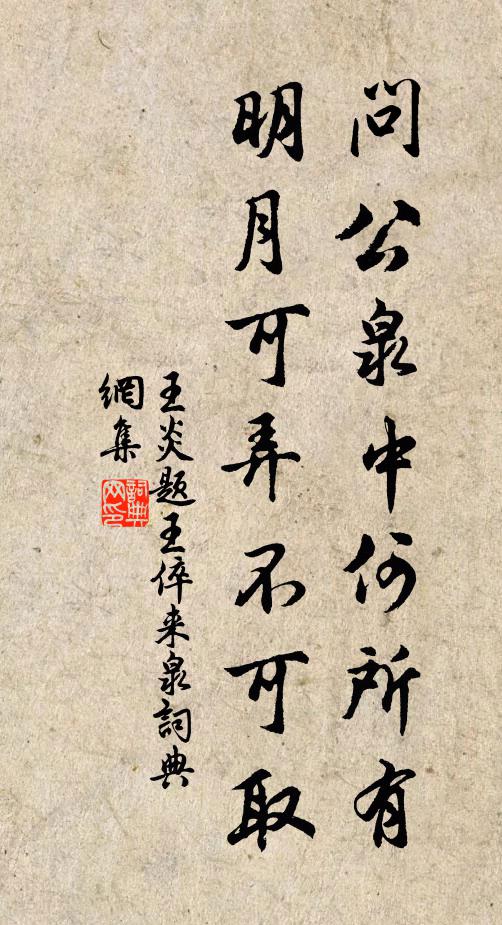 問公泉中何所有
明月可弄不可取
王炎题王倅来泉詞典
網集
詞典
网印